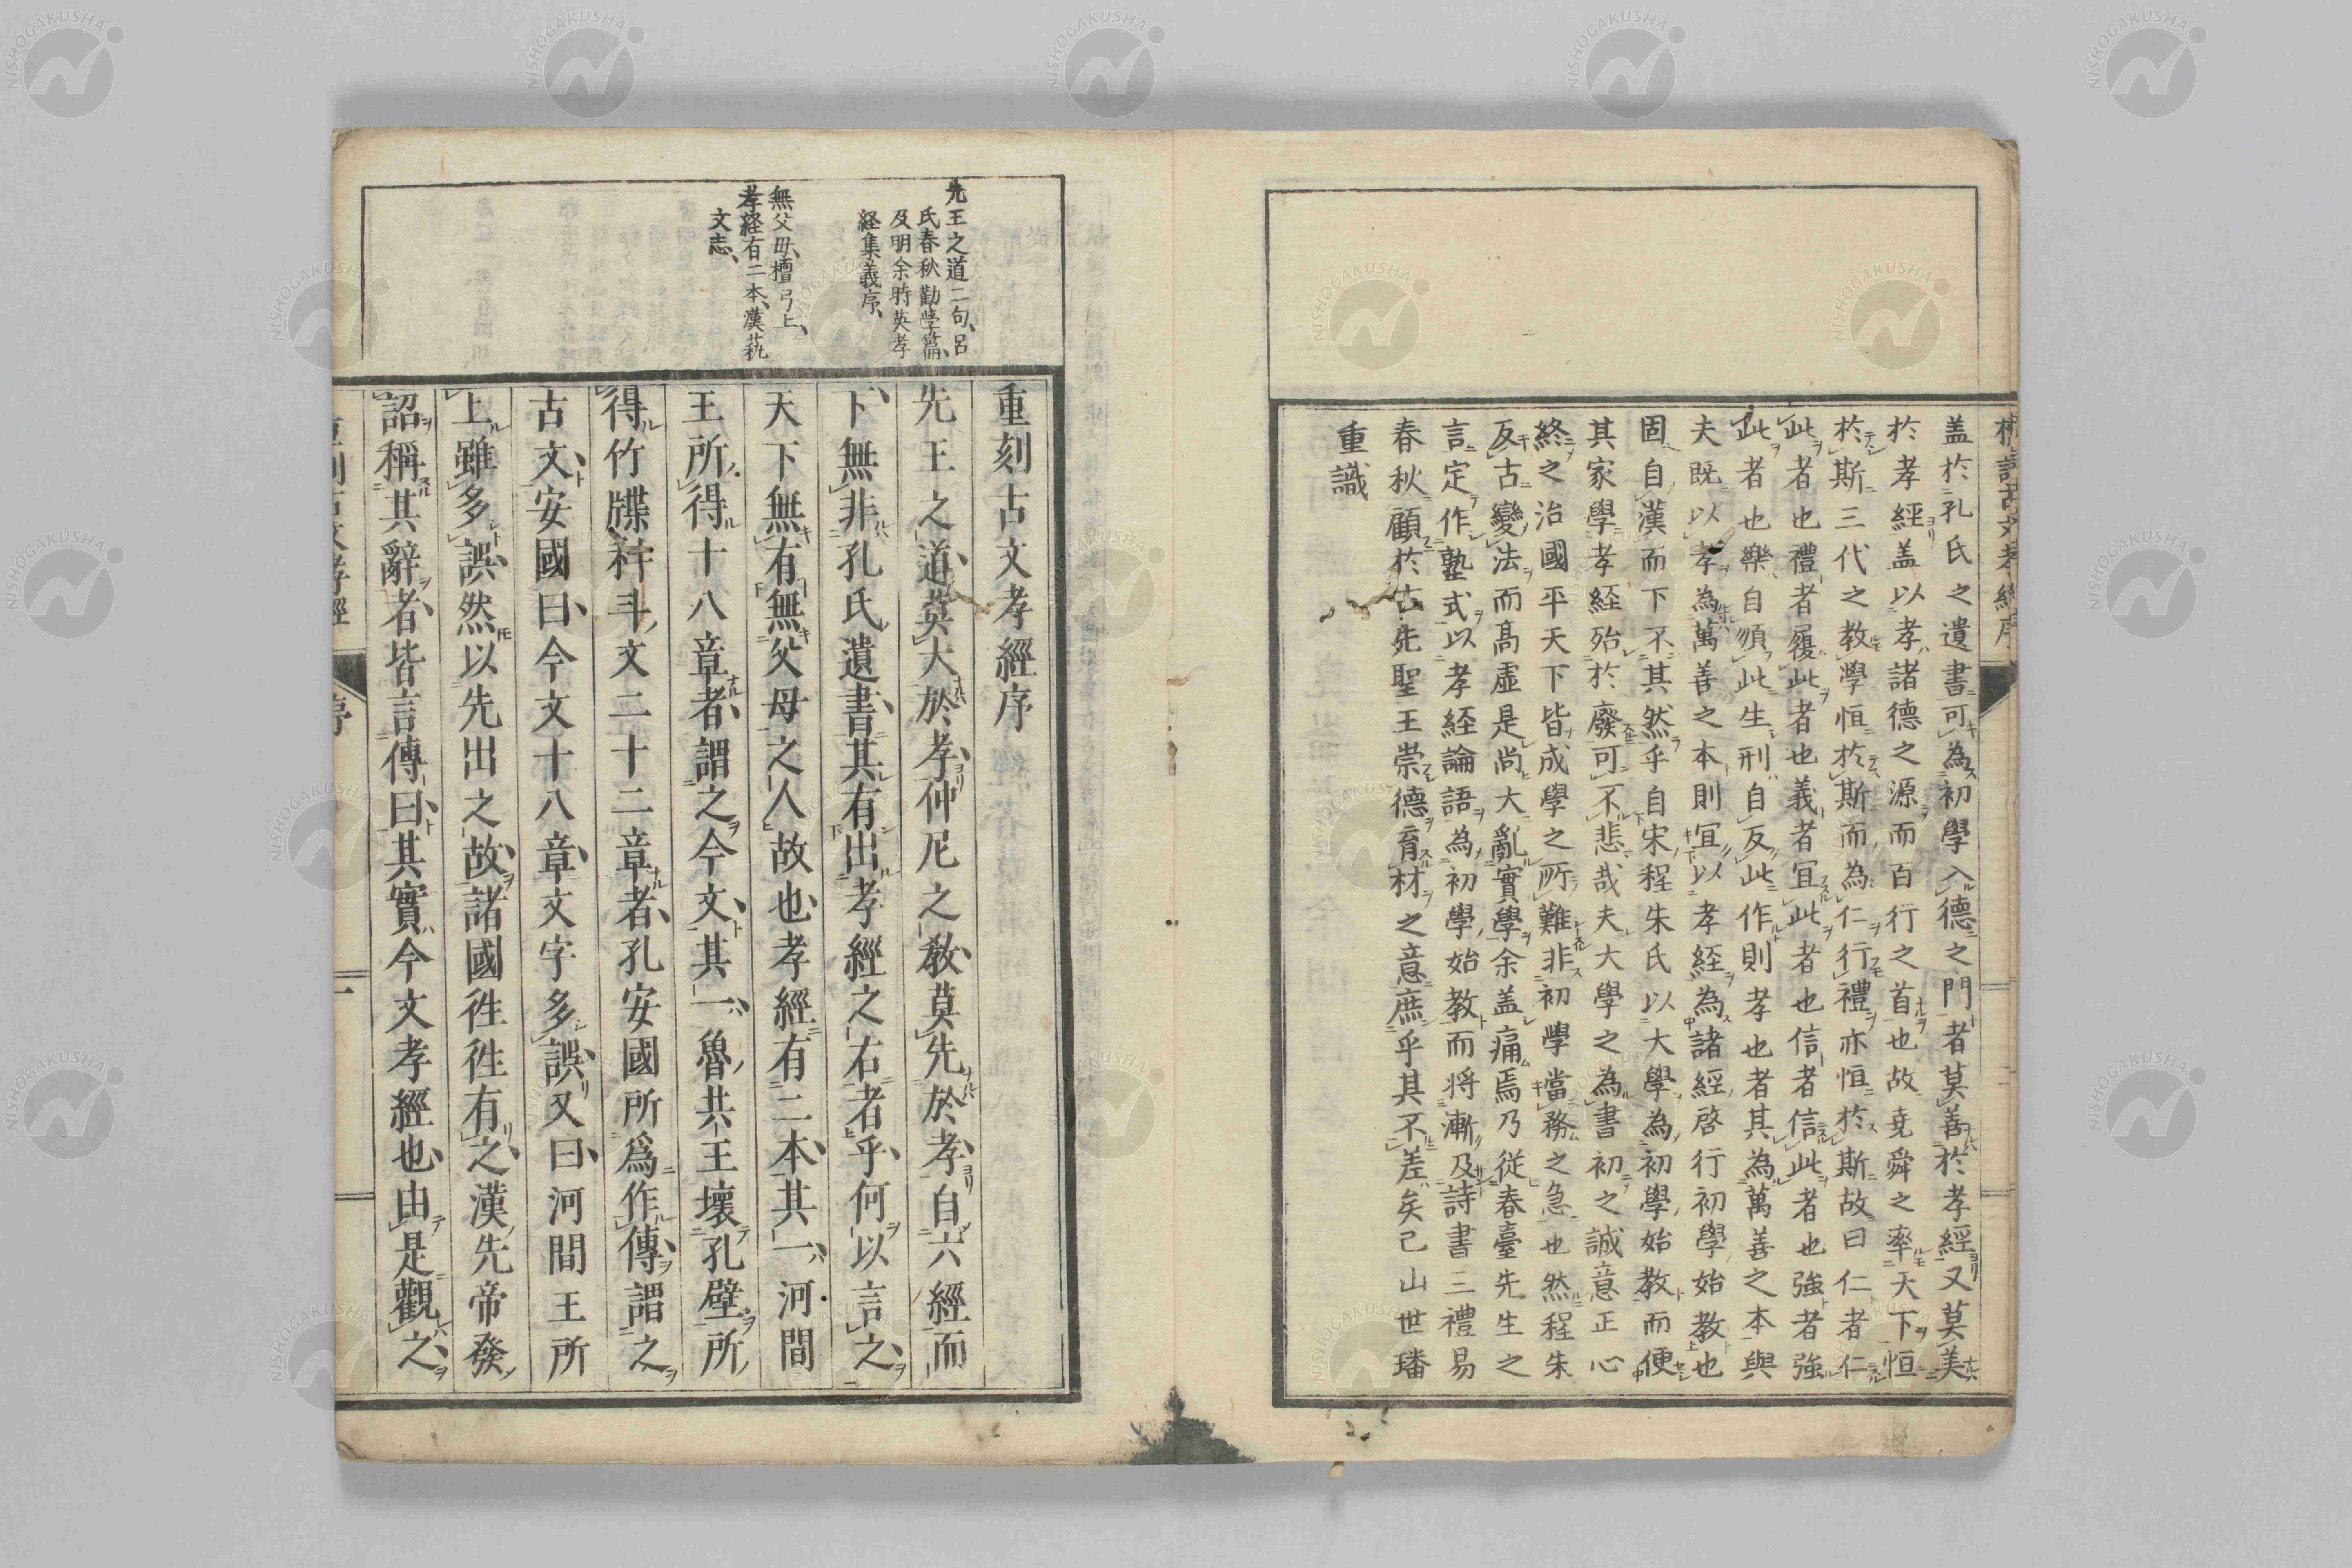 盖於孔氏之遺書可為初學入德之門者莫善於孝經又莫美
於孝經盖以孝諸德之源而百行之首也故堯舜之率天下恒
於斯三代之教學恒於斯而為仁行禮亦恒於斯故曰仁者仁
此者也禮者履此者也義者宜此者也信者信此者也強者強
此者也樂自順此生刑自反此作則孝也者其為萬善之本與
夫既以孝為萬善之本則宜以孝経為諸經啓行初學始教也
固自漢而下不其然乎自宋程朱氏以大學為初學始教而便
其家學孝経殆於廢可不悲哉夫大學之為書初之誠意正心
終之治國平天下皆成學之所難非初學當務之急也然程朱
反古變法而高虛是尚大亂實學余盖痛焉乃従春臺先生之
言定作塾式以孝経論語為初學始教而将漸及詩書三禮易
春秋顧於古先聖王崇德育材之意庶乎其不差矣己山世璠
重識
先王之道二句、呂
氏春秋勸學篇、
及明余時英孝
経集義序、
無父母、檀弓上、
孝経有二本、漢藝
文志、
重刻古文孝經序
先王之道、莫大於孝、仲尼之教、莫先於孝、自六經而
下、無非孔氏遺書、其有出孝經之右者乎、何以言之、
天下無有無父母之人故也、孝經有二本、其一、河間
王所得十八章者、謂之今文、其一、魯共王壞孔壁所
得竹牒科斗文二十二章者、孔安國所爲作傳、謂之
古文、安國曰、今文十八章、文字多誤、又曰、河間王所
上雖多誤、然以先出之故、諸國徃徃有之、漢先帝發
詔稱其辭者、皆言傳曰、其實今文孝經也、由是觀之、